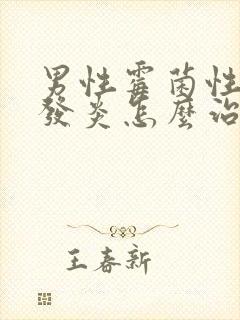 男性霉菌性
發炎怎麼治
王春新